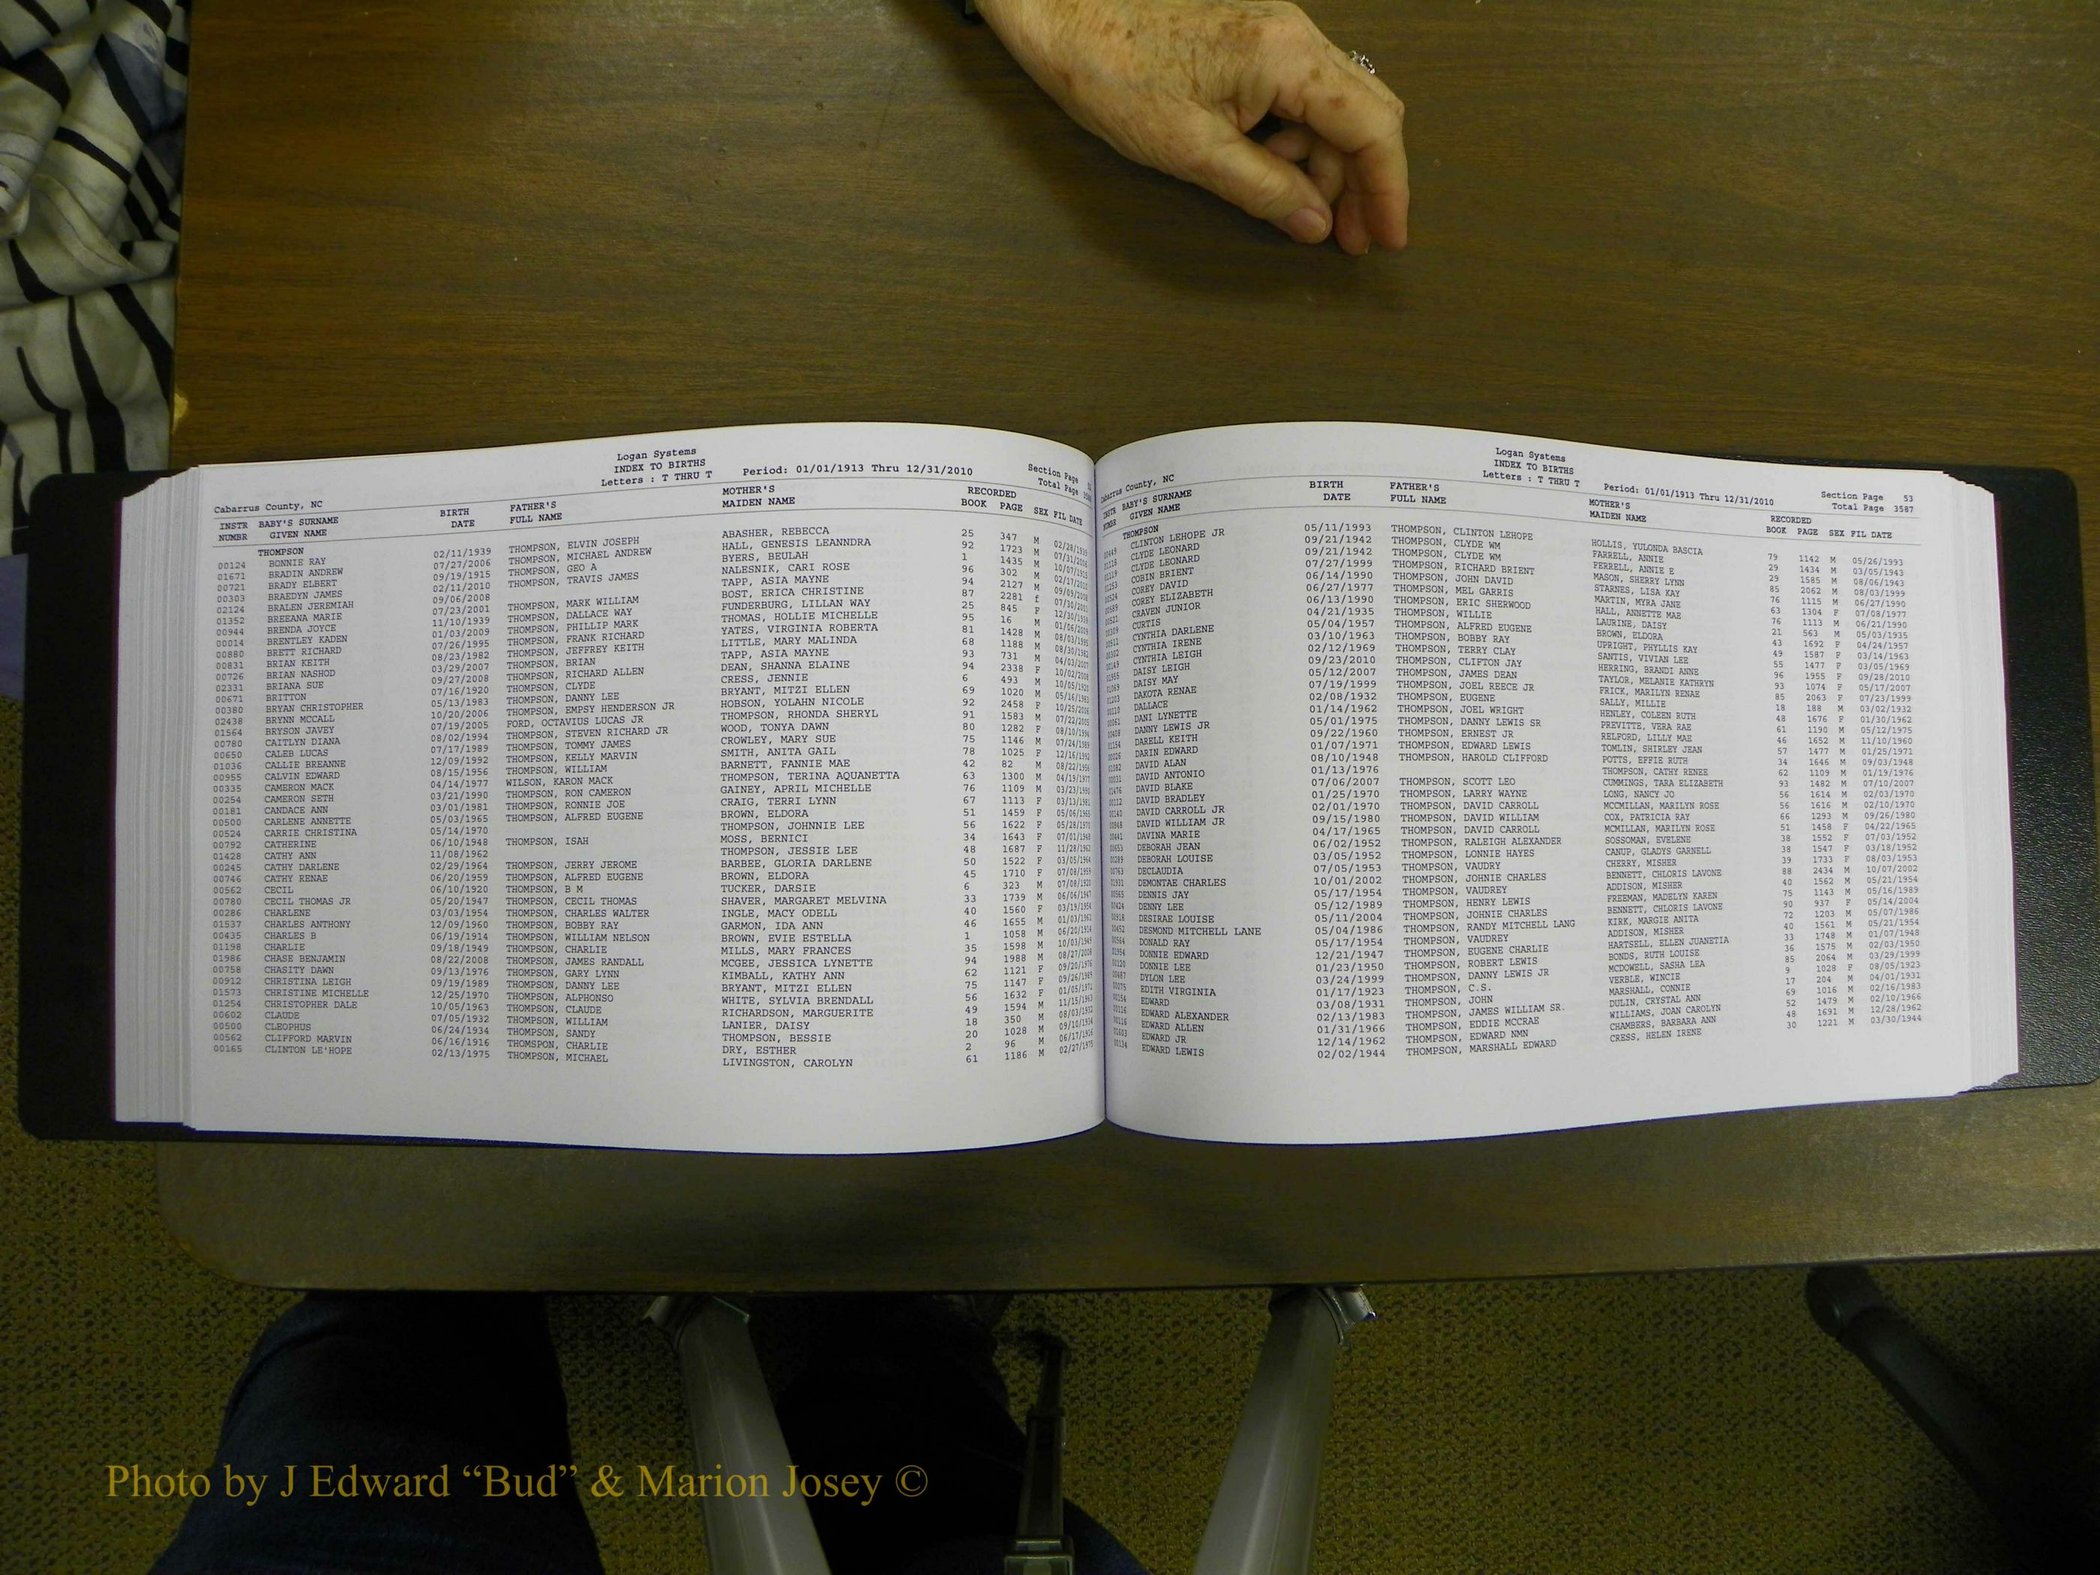 Logan Systems
INDEX TO BIRTHS
Letters : T THRU T Period: 01/01/1913 Thru 12/31/2010 Section Page
Cabarrus County, NC Total Page
INSTR BABY'S SURNAME BIRTH FATHER'S MOTHER'S RECORDED
NUMBR GIVEN NAME DATE FULL NAME MAIDEN NAME BOOK PAGE SEX FIL DATE
THOMPSON
00124 BONNIE RAY 02/11/1939 THOMPSON, ELVIN JOSEPH ABASHER, REBECCA 25 347 M 02/28/1939
01671 BRADIN ANDREW 07/27/2006 THOMPSON, MICHAEL ANDREW HALL, GENESIS LEANNDRA 92 1723 M 07/31/2006
00721 BRADY ELBERT 09/19/1915 THOMPSON, GEO A BYERS, BEULAH 1 1435 M 10/07/1915
00303 BRAEDYN JAMES 02/11/2010 THOMPSON, TRAVIS JAMES NALESNIK, CARI ROSE 96 302 M 02/17/2010
02124 BRALEN JEREMIAH 09/06/2008 TAPP, ASIA MAYNE 94 2127 M 09/09/2008
01352 BREEANA MARIE 07/23/2001 THOMPSON, MARK WILLIAM BOST, ERICA CHRISTINE 87 2281 f 07/30/2001
00944 BRENDA JOYCE 11/10/1939 THOMPSON, DALLACE WAY FUNDERBURG, LILLAN WAY 25 845 F 12/30/1939
00014 BRENTLEY KADEN 01/03/2009 THOMPSON, PHILLIP MARK THOMAS, HOLLIE MICHELLE 95 16 M 01/06/2009
00880 BRETT RICHARD 07/26/1995 THOMPSON, FRANK RICHARD YATES, VIRGINIA ROBERTA 81 1428 M 08/03/1995
00831 BRIAN KEITH 08/23/1982 THOMPSON, JEFFREY KEITH LITTLE, MARY MALINDA 68 1188 M 08/30/1982
00726 BRIAN NASHOD 03/29/2007 THOMPSON, BRIAN TAPP, ASIA MAYNE 93 731 M 04/03/2007
02331 BRIANA SUE 09/27/2008 THOMPSON, RICHARD ALLEN DEAN, SHANNA ELAINE 94 2338 F 10/02/2008
00671 BRITTON 07/16/1920 THOMPSON, CLYDE CRESS, JENNIE 6 493 M 10/05/1920
00380 BRYAN CHRISTOPHER 05/13/1983 THOMPSON, DANNY LEE BRYANT, MITZI ELLEN 69 1020 M 05/16/1983
02438 BRYNN MCCALL 10/20/2006 THOMPSON, EMPSY HENDERSON JR HOBSON, YOLAHN NICOLE 92 2458 F 10/25/2006
01564 BRYSON JAVEY 07/19/2005 FORD, OCTAVIUS LUCAS JR THOMPSON, RHONDA SHERYL 91 1583 M 07/22/2005
00780 CAITLYN DIANA 08/02/1994 THOMPSON, STEVEN RICHARD JR WOOD, TONYA DAWN 80 1282 F 08/10/1994
00650 CALEB LUCAS 07/17/1989 THOMPSON, TOMMY JAMES CROWLEY, MARY SUE 75 1146 M 07/24/1989
01036 CALLIE BREANNE 12/09/1992 THOMPSON, KELLY MARVIN SMITH, ANITA GAIL 78 1025 F 12/16/1992
00955 CALVIN EDWARD 08/15/1956 THOMPSON, WILLIAM BARNETT, FANNIE MAE 42 82 M 08/22/1956
00335 CAMERON MACK 04/14/1977 WILSON, KARON MACK THOMPSON, TERINA AQUANETTA 63 1300 M 04/19/1977
00254 CAMERON SETH 03/21/1990 THOMPSON, RON CAMERON GAINEY, APRIL MICHELLE 76 1109 M 03/23/1990
00181 CANDACE ANN 03/01/1981 THOMPSON, RONNIE JOE CRAIG, TERRI LYNN 67 1113 F 03/13/1981
00500 CARLENE ANNETTE 05/03/1965 THOMPSON, ALFRED EUGENE BROWN, ELDORA 51 1459 F 05/06/1965
00524 CARRIE CHRISTINA 05/14/1970 THOMPSON, JOHNNIE LEE 56 1622 F 05/28/1970
00792 CATHERINE 06/10/1948 THOMPSON, ISAH MOSS, BERNICI 34 1643 F 07/01/1948
01428 CATHY ANN 11/08/1962 THOMPSON, JESSIE LEE 48 1687 F 11/28/1962
00245 CATHY DARLENE 02/29/1964 THOMPSON, JERRY JEROME BARBEE, GLORIA DARLENE 50 1522 F 03/05/1964
00746 CATHY RENAE 06/20/1959 THOMPSON, ALFRED EUGENE BROWN, ELDORA 45 1710 F 07/08/1959
00562 CECIL 06/10/1920 THOMPSON, B M TUCKER, DARSIE 6 323 M 07/08/1920
00780 CECIL THOMAS JR 05/20/1947 THOMPSON, CECIL THOMAS SHAVER, MARGARET MELVINA 33 1739 M 06/06/1947
00286 CHARLENE 03/03/1954 THOMPSON, CHARLES WALTER INGLE, MACY ODELL 40 1560 F 03/19/1954
01537 CHARLES ANTHONY 12/09/1960 THOMPSON, BOBBY RAY GARMON, IDA ANN 46 1655 M 01/03/1961
00435 CHARLES B 06/19/1914 THOMPSON, WILLIAM NELSON BROWN, EVIE ESTELLA 1 1058 M 06/20/1914
01198 CHARLIE 09/18/1949 THOMPSON, CHARLIE MILLS, MARY FRANCES 35 1598 M 10/03/1949
01986 CHASE BENJAMIN 08/22/2008 THOMPSON, JAMES RANDALL MCGEE, JESSICA LYNETTE 94 1988 M 08/27/2008
00758 CHASITY DAWN 09/13/1976 THOMPSON, GARY LYNN KIMBALL, KATHY ANN 62 1121 F 09/20/1976
00912 CHRISTINA LEIGH 09/19/1989 THOMPSON, DANNY LEE BRYANT, MITZI ELLEN 75 1147 F 09/26/1989
01573 CHRISTINE MICHELLE 12/25/1970 THOMPSON, ALPHONSO WHITE, SYLVIA BRENDALL 56 1632 F 01/05/1971
01254 CHRISTOPHER DALE 10/05/1963 THOMPSON, CLAUDE RICHARDSON, MARGUERITE 49 1594 M 11/15/1963
00602 CLAUDE 07/05/1932 THOMPSON, WILLIAM LANIER, DAISY 18 350 M 08/03/1932
00500 CLEOPHUS 06/24/1934 THOMPSON, SANDY THOMPSON, BESSIE 20 1028 M 09/10/1934
00562 CLIFFORD MARVIN 06/16/1916 THOMSPON, CHARLIE DRY, ESTHER 2 96 M 06/17/1916
00165 CLINTON LE'HOPE 02/13/1975 THOMPSON, MICHAEL LIVINGSTON, CAROLYN 61 1186 M 02/27/1975
Logan Systems
INDEX TO BIRTHS
Letters : T THRU T Period: 01/01/1913 Thru 12/31/2010 Section Page 53
Cabarrus County, NC Total Page 3587
INSTR BABY'S SURNAME BIRTH FATHER'S MOTHER'S RECORDED
NUMBR GIVEN NAME DATE FULL NAME MAIDEN NAME BOOK PAGE SEX FIL DATE
THOMPSON
CLINTON LEHOPE JR 05/11/1993 THOMPSON, CLINTON LEHOPE HOLLIS, YULONDA BASCIA 79 1142 M 05/26/1993
CLYDE LEONARD 09/21/1942 THOMPSON, CLYDE WM FARRELL, ANNIE 29 1434 M 03/05/1943
CLYDE LEONARD 09/21/1942 THOMPSON, CLYDE WM FERRELL, ANNIE E 29 1585 M 08/06/1943
COBIN BRIENT 07/27/1999 THOMPSON, RICHARD BRIENT MASON, SHERRY LYNN 85 2062 M 08/03/1999
COREY DAVID 06/14/1990 THOMPSON, JOHN DAVID STARNES, LISA KAY 76 1115 M 06/27/1990
COREY ELIZABETH 06/27/1977 THOMPSON, MEL GARRIS MARTIN, MYRA JANE 63 1304 F 07/08/1977
CRAVEN JUNIOR 06/13/1990 THOMPSON, ERIC SHERWOOD HALL, ANNETTE MAE 76 1113 M 06/21/1990
CURTIS 04/21/1935 THOMPSON, WILLIE LAURINE, DAISY 21 563 M 05/03/1935
CYNTHIA DARLENE 05/04/1957 THOMPSON, ALFRED EUGENE BROWN, ELDORA 43 1692 F 04/24/1957
CYNTHIA IRENE 03/10/1963 THOMPSON, BOBBY RAY UPRIGHT, PHYLLIS KAY 49 1587 F 03/14/1963
CYNTHIA LEIGH 02/12/1969 THOMPSON, TERRY CLAY SANTIS, VIVIAN LEE 55 1477 F 03/05/1969
DAISY LEIGH 09/23/2010 THOMPSON, CLIFTON JAY HERRING, BRANDI ANNE 96 1955 F 09/28/2010
DAISY MAY 05/12/2007 THOMPSON, JAMES DEAN TAYLOR, MELANIE KATHRYN 93 1074 F 05/17/2007
DAKOTA RENAE 07/19/1999 THOMPSON, JOEL REECE JR FRICK, MARILYN RENAE 85 2063 F 07/23/1999
DALLACE 02/08/1932 THOMPSON, EUGENE SALLY, MILLIE 18 188 M 03/02/1932
DANI LYNETTE 01/14/1962 THOMPSON, JOEL WRIGHT HENLEY, COLEEN RUTH 48 1676 F 01/30/1962
DANNY LEWIS JR 05/01/1975 THOMPSON, DANNY LEWIS SR PREVITTE, VERA RAE 61 1190 M 05/12/1975
DARELL KEITH 09/22/1960 THOMPSON, ERNEST JR RELFORD, LILLY MAE 46 1652 M 11/10/1960
DARIN EDWARD 01/07/1971 THOMPSON, EDWARD LEWIS TOMLIN, SHIRLEY JEAN 57 1477 M 01/25/1971
DAVID ALAN 08/10/1948 THOMPSON, HAROLD CLIFFORD POTTS, EFFIE RUTH 34 1646 M 09/03/1948
DAVID ANTONIO 01/13/1976 THOMPSON, CATHY RENEE 62 1109 M 01/19/1976
DAVID BLAKE 07/06/2007 THOMPSON, SCOTT LEO CUMMINGS, TARA ELIZABETH 93 1482 M 07/10/2007
DAVID BRADLEY 01/25/1970 THOMPSON, LARRY WAYNE LONG, NANCY JO 56 1614 M 02/03/1970
DAVID CARROLL JR 02/01/1970 THOMPSON, DAVID CARROLL MCCMILLAN, MARILYN ROSE 56 1616 M 02/10/1970
DAVID WILLIAM JR 09/15/1980 THOMPSON, DAVID WILLIAM COX, PATRICIA RAY 66 1293 M 09/26/1980
DAVINA MARIE 04/17/1965 THOMPSON, DAVID CARROLL MCMILLAN, MARILYN ROSE 51 1458 F 04/22/1965
DEBORAH JEAN 06/02/1952 THOMPSON, RALEIGH ALEXANDER SOSSOMAN, EVELENE 38 1552 F 07/03/1952
DEBORAH LOUISE 03/05/1952 THOMPSON, LONNIE HAYES CANUP, GLADYS GARNELL 38 1547 F 03/18/1952
DECLAUDIA 07/05/1953 THOMPSON, VAUDRY CHERRY, MISHER 39 1733 F 08/03/1953
DEMONTAE CHARLES 10/01/2002 THOMPSON, JOHNIE CHARLES BENNETT, CHLORIS LAVONE 88 2434 M 10/07/2002
DENNIS JAY 05/17/1954 THOMPSON, VAUDREY ADDISON, MISHER 40 1562 M 05/21/1954
DENNY LEE 05/12/1989 THOMPSON, HENRY LEWIS FREEMAN, MADELYN KAREN 75 1143 M 05/16/1989
DESIRAE LOUISE 05/11/2004 THOMPSON, JOHNIE CHARLES BENNETT, CHLORIS LAVONE 90 937 F 05/14/2004
DESMOND MITCHELL LANE 05/04/1986 THOMPSON, RANDY MITCHELL LANG KIRK, MARGIE ANITA 72 1203 M 05/07/1986
DONALD RAY 05/17/1954 THOMPSON, VAUDREY ADDISON, MISHER 40 1561 M 05/21/1954
DONNIE EDWARD 12/21/1947 THOMPSON, EUGENE CHARLIE HARTSELL, ELLEN JUANETIA 33 1748 M 01/07/1948
DONNIE LEE 01/23/1950 THOMPSON, ROBERT LEWIS BONDS, RUTH LOUISE 36 1575 M 02/03/1950
DYLON LEE 03/24/1999 THOMPSON, DANNY LEWIS JR MCDOWELL, SASHA LEA 85 2064 M 03/29/1999
EDITH VIRGINIA 01/17/1923 THOMPSON, C.S. VERBLE, WINCIE 9 1028 F 08/05/1923
EDWARD 03/08/1931 THOMPSON, JOHN MARSHALL, CONNIE 17 204 M 04/01/1931
EDWARD ALEXANDER 02/13/1983 THOMPSON, JAMES WILLIAM SR. DULIN, CRYSTAL ANN 69 1016 M 02/16/1983
EDWARD ALLEN 01/31/1966 THOMPSON, EDDIE MCCRAE WILLIAMS, JOAN CAROLYN 52 1479 M 02/10/1966
EDWARD JR 12/14/1962 THOMPSON, EDWARD NMN CHAMBERS, BARBARA ANN 48 1691 M 12/28/1962
EDWARD LEWIS 02/02/1944 THOMPSON, MARSHALL EDWARD CRESS, HELEN IRENE 30 1221 M 03/30/1944
Photo by J Edward “Bud” & Marion Josey ©